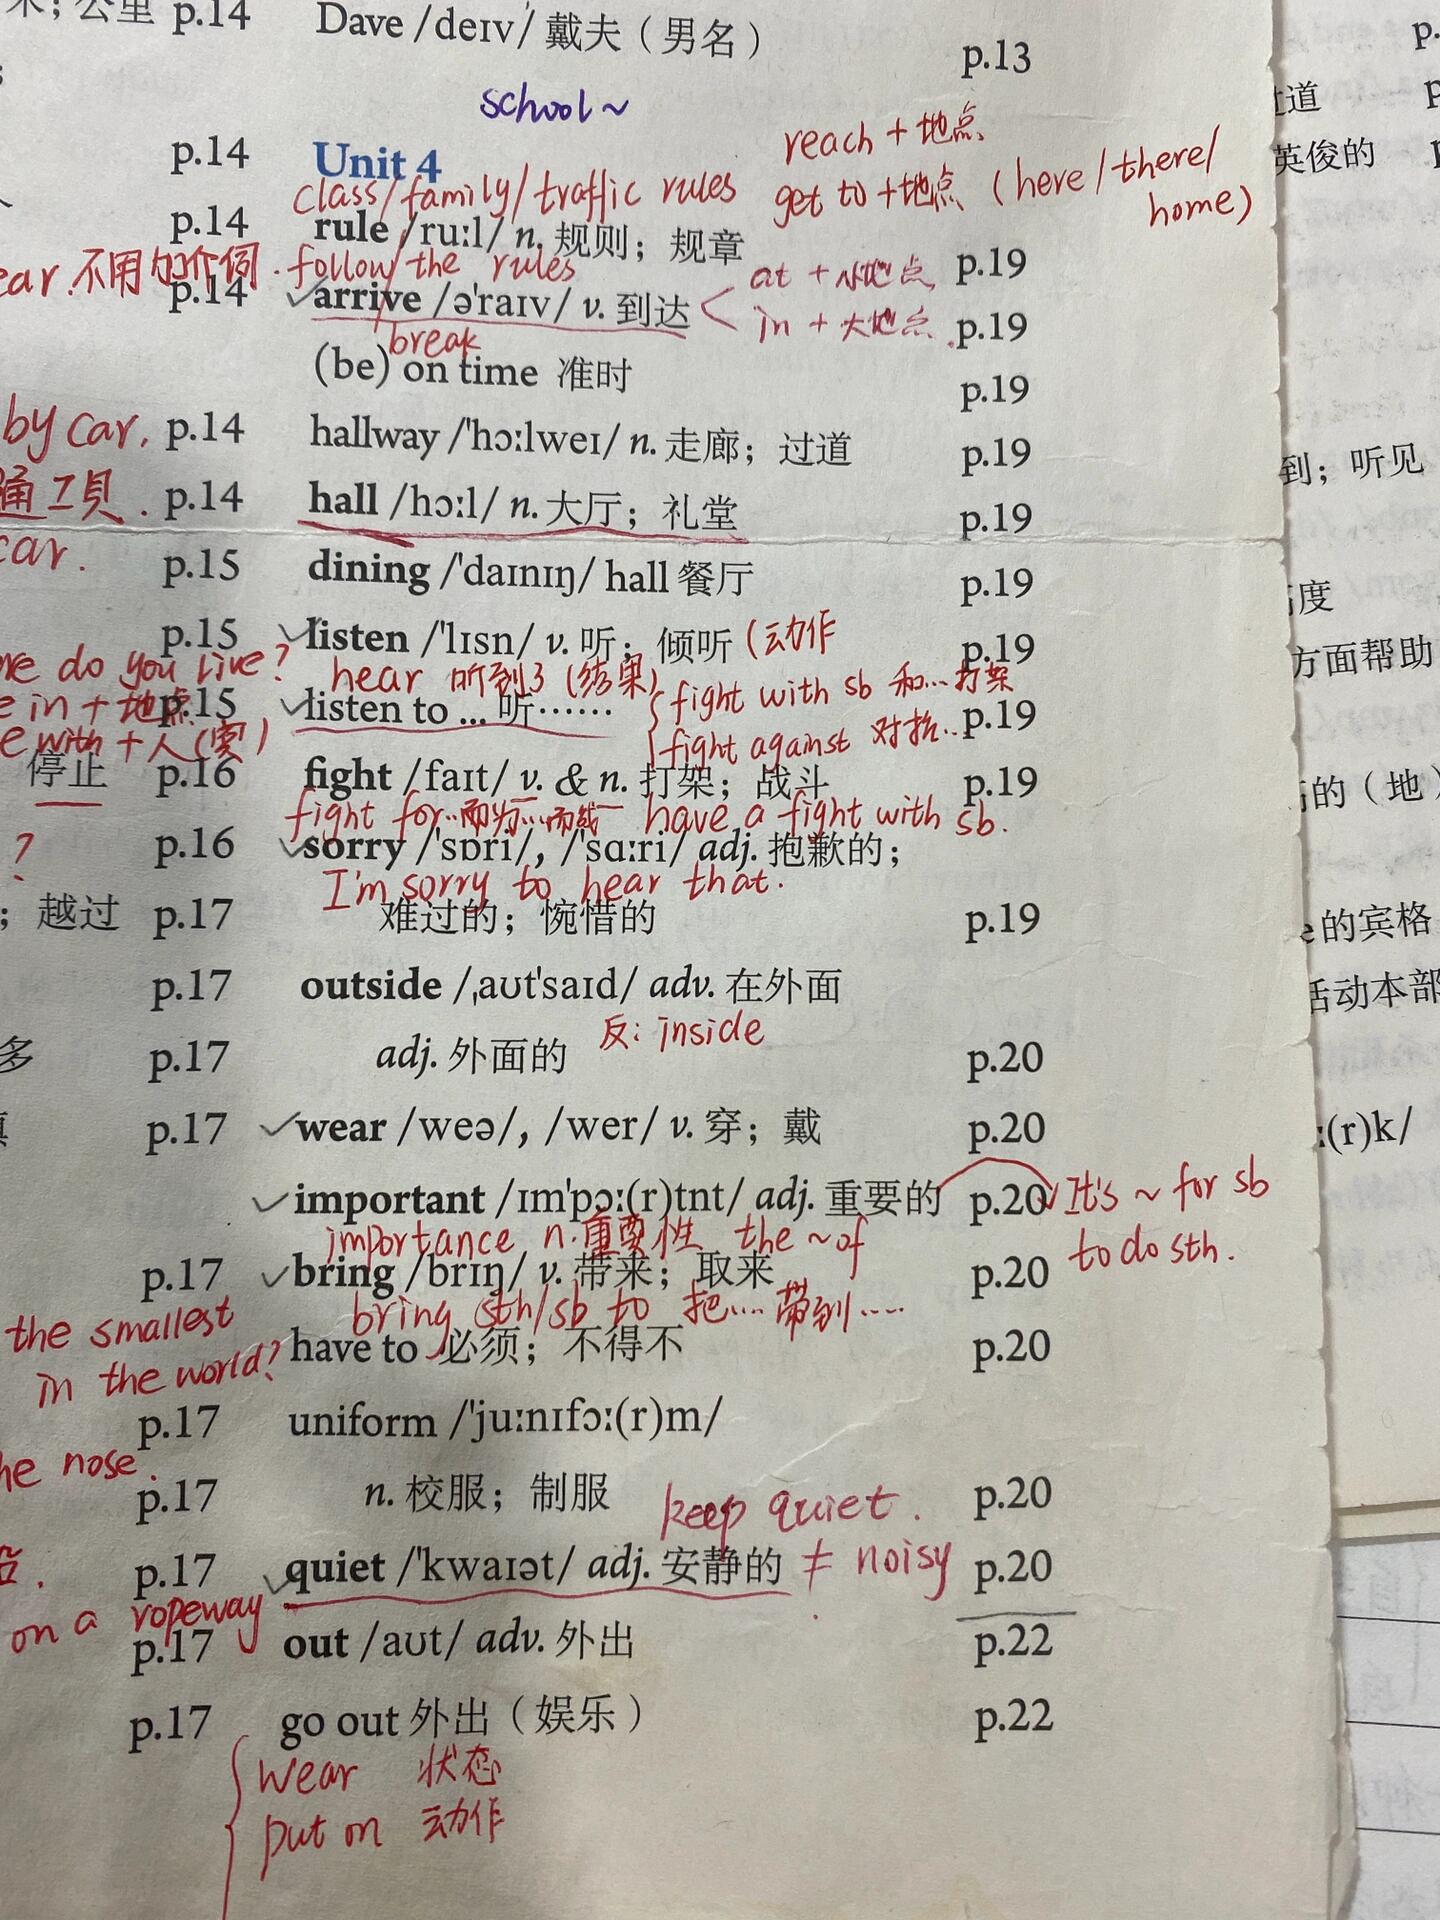 米；公里 p.14
Dave /deɪv/ 戴夫（男名）
p.13
school~
reach + 地点
p.14
Unit 4
get to + 地点 (here / there /
home)
class/family/traffic rules
p.14
rule /ruːl/ n. 规则；规章
p.19
ear.不用加介词.
follow the rules
break
p.14
arrive /əˈraɪv/ v. 到达
at + 小地点
in + 大地点
p.19
(be) on time 准时
p.19
by car.
p.14
hallway /ˈhɔːlweɪ/ n. 走廊；过道
p.19
通工具.
p.14
hall /hɔːl/ n. 大厅；礼堂
p.19
car.
p.15
dining /ˈdaɪnɪŋ/ hall 餐厅
p.19
p.15
listen /ˈlɪsn/ v. 听；倾听 (动作
p.19
re do you live?
hear 听到了 (结果)
e in + 地点
p.15
listen to ... 听……
fight with sb 和...打架
fight against 对抗..
p.19
e with + 人(宾)
停止 p.16
fight /faɪt/ v. & n. 打架；战斗
p.19
fight for..而为...而战
have a fight with sb.
?
p.16
sorry /ˈsɒri/, /ˈsɑːri/ adj. 抱歉的；
I'm sorry to hear that.
；越过 p.17
难过的；惋惜的
p.19
p.17
outside /ˌaʊtˈsaɪd/ adv. 在外面
反: inside
多 p.17
adj. 外面的
p.20
p.17
wear /weə/, /wer/ v. 穿；戴
p.20
important /ɪmˈpɔː(r)tnt/ adj. 重要的
p.20
It's ~ for sb
to do sth.
importance n.重要性 the ~of
p.17
bring /brɪŋ/ v. 带来；取来
p.20
bring sth/sb to 把…..带到…..
the smallest
in the world?
have to 必须；不得不
p.20
p.17
uniform /ˈjuːnɪfɔː(r)m/
he nose.
p.17
n. 校服；制服
p.20
keep quiet.
p.17
quiet /ˈkwaɪət/ adj. 安静的
≠ noisy
p.20
on a ropeway
p.17
out /aʊt/ adv. 外出
p.22
p.17
go out 外出（娱乐）
p.22
wear 状态
put on 动作
过道
英俊的
到；听见
度
方面帮助
的（地）
e的宾格
活动本部
ː(r)k/